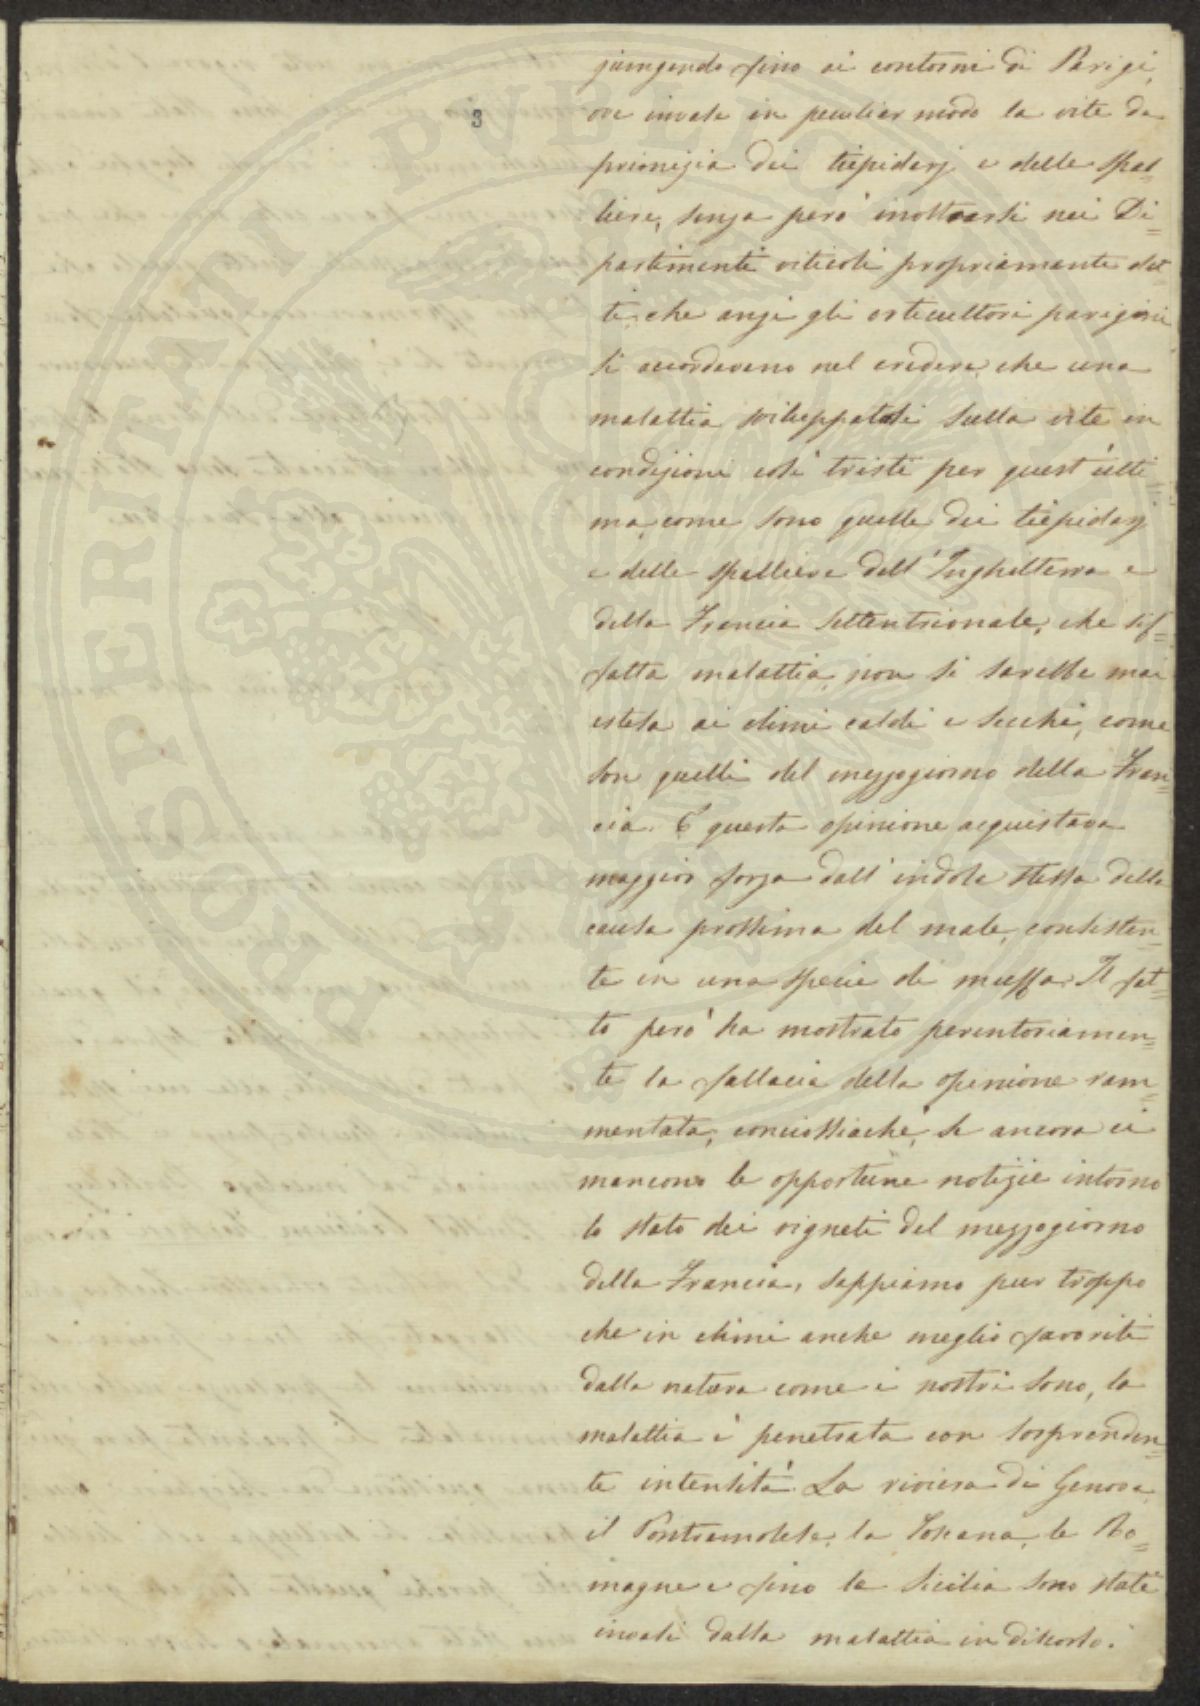 PROSPERITATI PVBLICAE
3
giungendo fino ai contorni di Parigi,
ove invase in peculiar modo la vite da
primizia dei tiepidarj e delle spal=
liere, senza però inoltrarsi nei Di=
partimenti viticoli propriamente det=
ti, che anzi gli orticultori parigini
si accordavano nel credere, che una
malattia sviluppatasi sulla vite in
condizioni così tristi per quest'ulti=
ma, come sono quelle dei tiepidarj
e delle spalliere dell'Inghilterra e
della Francia settentrionale, che sif=
fatta malattia, non si sarebbe mai
estesa ai climi caldi e secchi, come
son quelli del mezzogiorno della Fran=
cia. E questa opinione acquistava
maggior forza dall'indole stessa della
causa prossima del male, consisten=
te in una specie di muffa. Il fat=
to però ha mostrato perentoriamen=
te la fallacia della opinione ram=
mentata, conciossiachè, se ancora ci
mancono le opportune notizie intorno
lo stato dei vigneti del mezzogiorno
della Francia, sappiamo pur troppo
che in climi anche meglio favoriti
dalla natura come i nostri sono, la
malattia è penetrata con sorprenden=
te intensità. La riviera di Genova,
il Pontremolese, la Toscana, le Ro=
magne e fino la Sicilia sono state
invase dalla malattia in discorso.